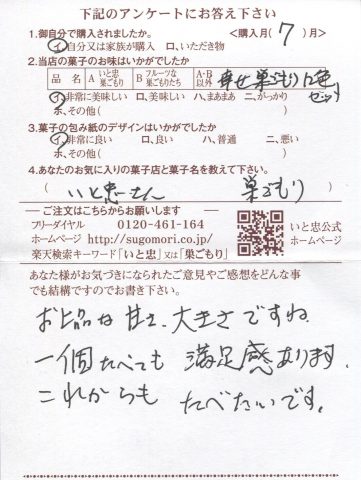 下記のアンケートにお答え下さい
1.御自分で購入されましたか。 <購入月( 7 )月>
イ.自分又は家族が購入 ロ.いただき物
2.当店の菓子のお味はいかがでしたか
品 名 A いと忠巣ごもり B フルーツな巣ごもりたち A・B以外 幸せ巣ごもり12色セット
イ.非常に美味しい ロ.美味しい ハ.まあまあ ニ.がっかり
ホ.その他( )
3.菓子の包み紙のデザインはいかがでしたか
イ.非常に良い ロ.良い ハ.普通 ニ.悪い
ホ.その他( )
4.あなたのお気に入りの菓子店と菓子名を教えて下さい。
( いと忠さん 巣ごもり )
― ご注文はこちらからお願いします ―
フリーダイヤル 0120-461-164
ホームページ http://sugomori.co.jp/
楽天検索キーワード「いと忠」又は「巣ごもり」
いと忠公式
ホームページ
あなた様がお気づきになられたご意見やご感想をどんな事
でも結構ですのでお書き下さい。
お上品な甘さ、大きさですね。
一個たべても 満足感あります。
これからも たべたいです。